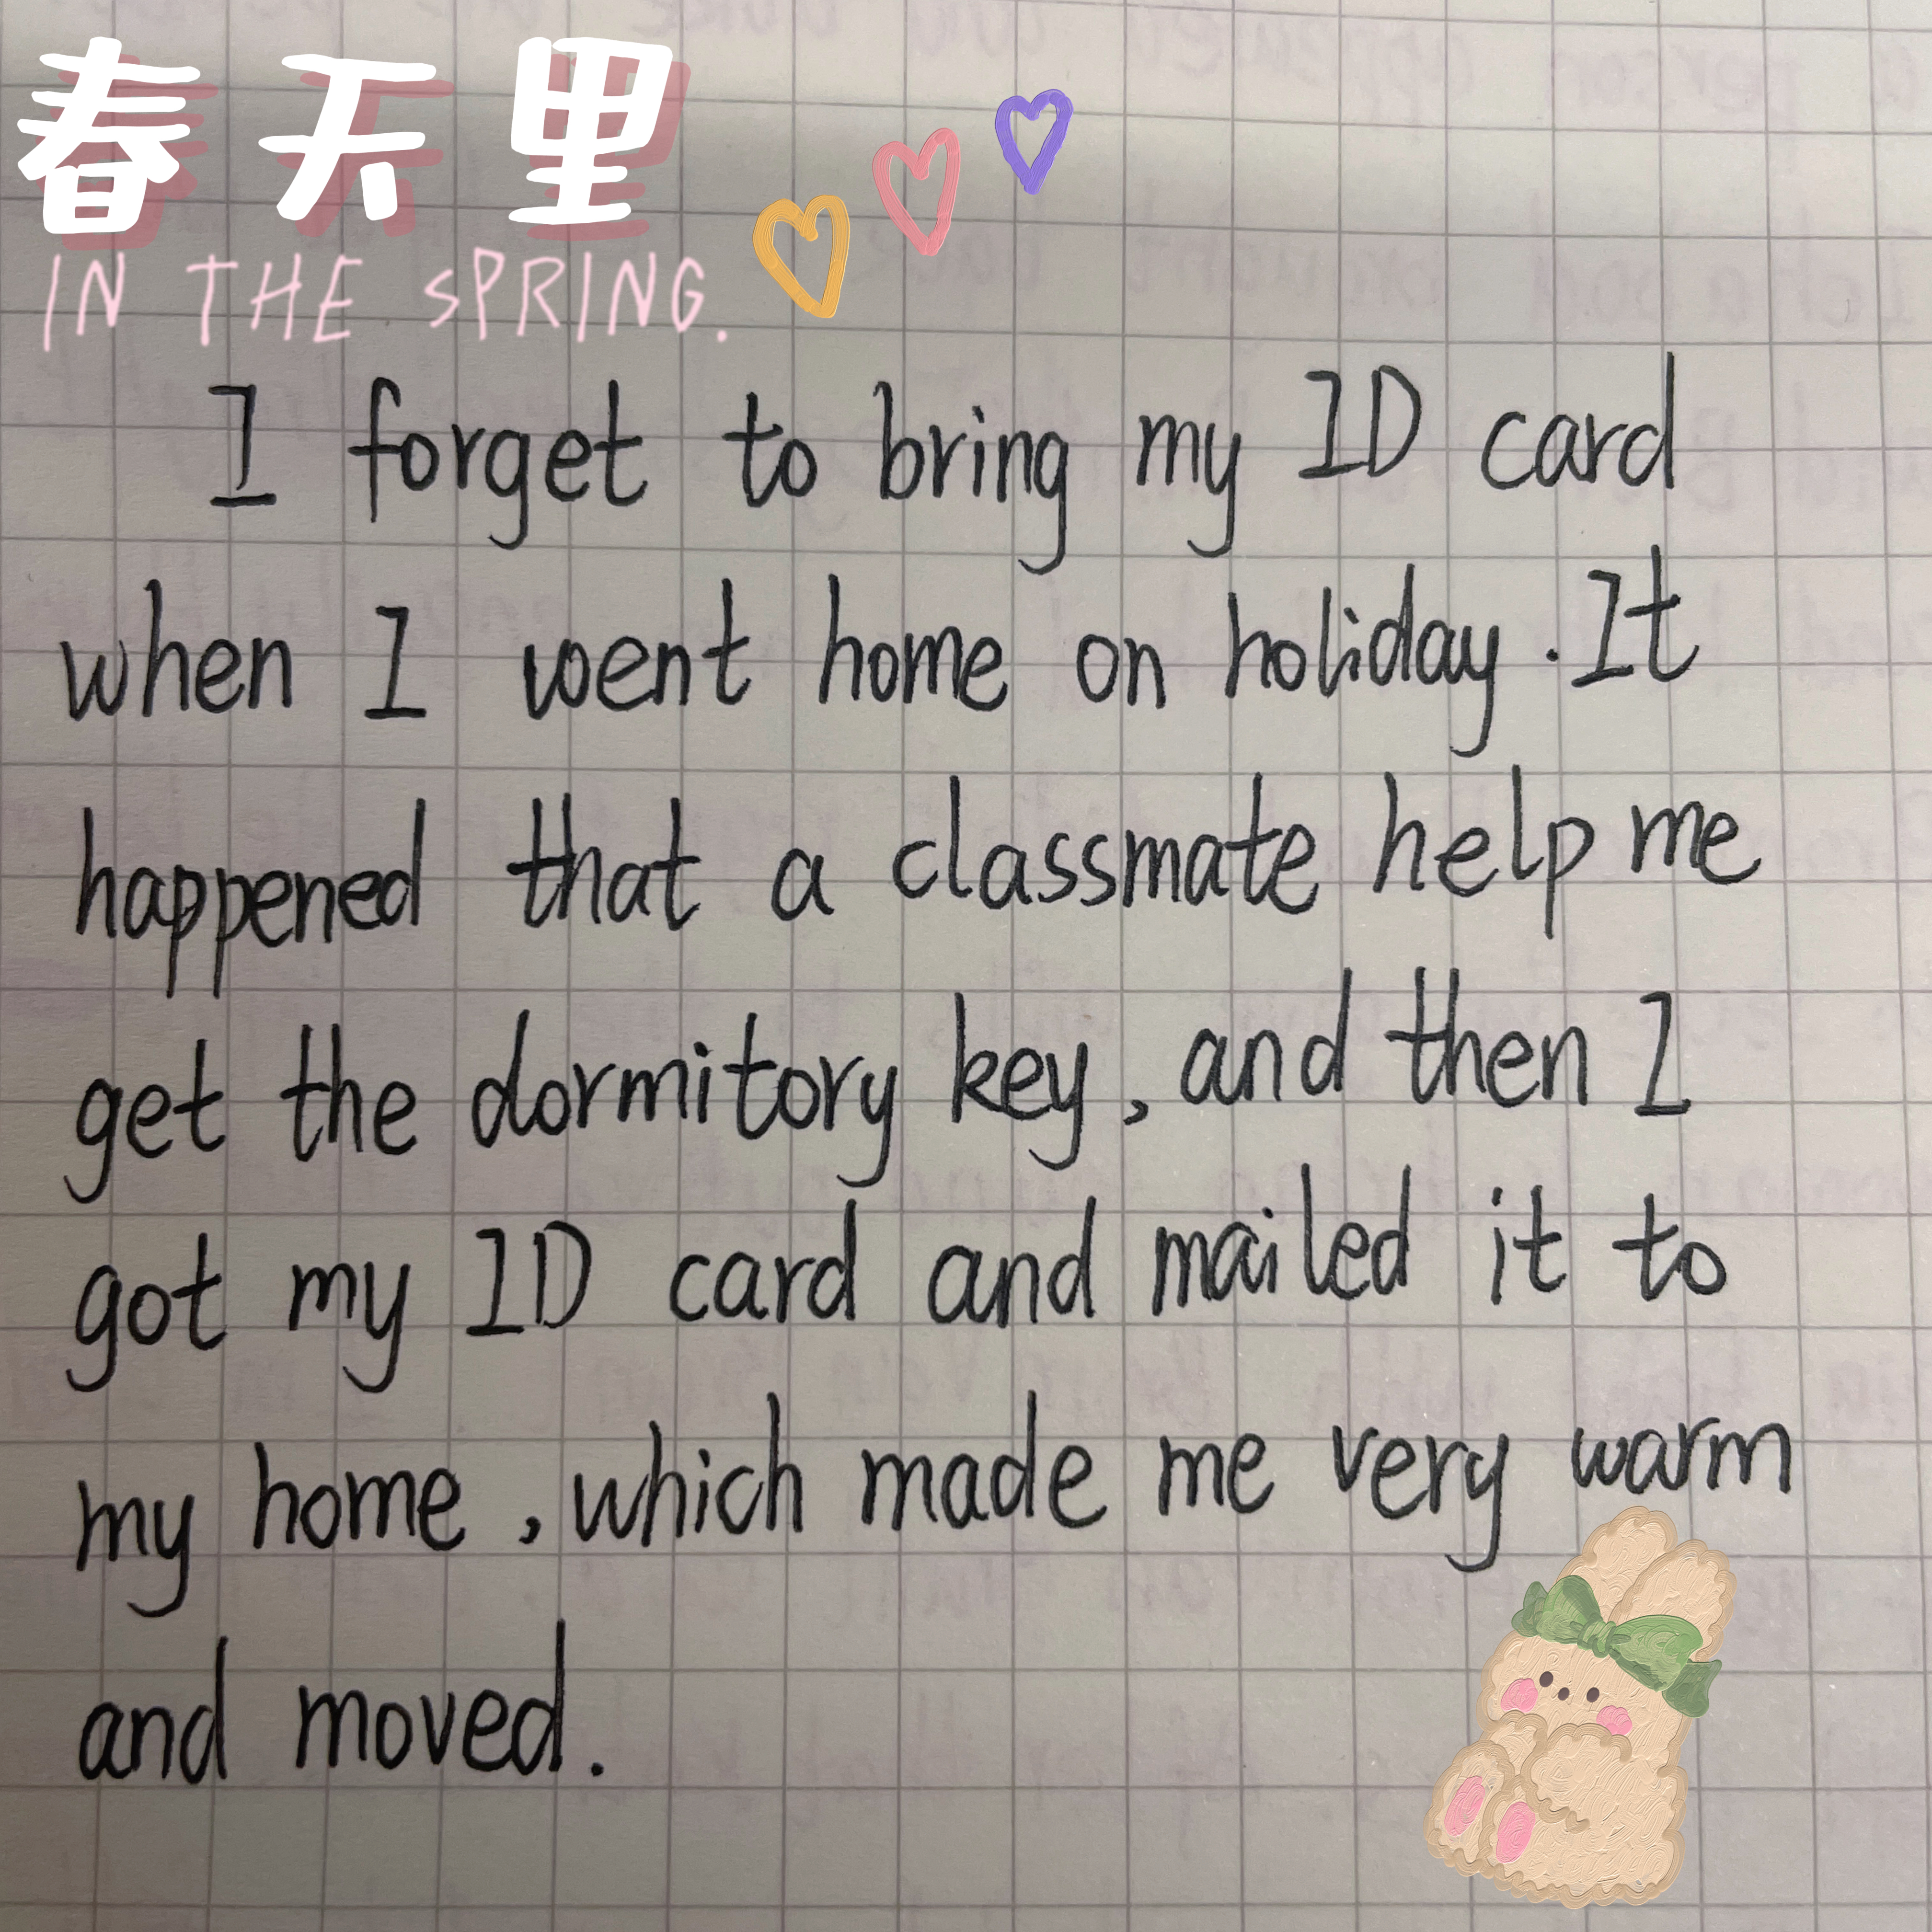 春天里
IN THE SPRING.
I forget to bring my ID card
when I went home on holiday. It
happened that a classmate help me
get the dormitory key, and then I
got my ID card and mailed it to
my home, which made me very warm
and moved.